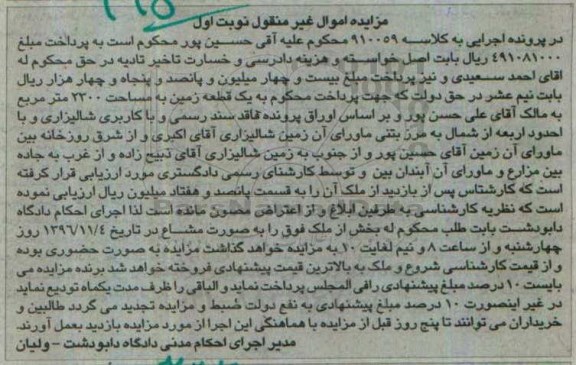 مزایده اموال غیر منقول نوبت اول
در پرونده اجرایی به کلاسه ۹۱۰۰۵۹ محکوم علیه آقی حسین پور محکوم است به پرداخت مبلغ
۴۹۱۰۸۱۰۰۰ ریال بابت اصل خواسته و هزینه دادرسی و خسارت تاخیر تادیه در حق محکوم له
اقای احمد سعیدی و نیز پرداخت مبلغ بیست و چهار میلیون و پانصد و پنجاه و چهار هزار ریال
بابت نیم عشر در حق دولت که جهت پرداخت محکوم به یک قطعه زمین به مساحت ۲۳۰۰ متر مربع
به مالک آقای علی حسن پور و بر اساس اوراق پرونده فاقد سند رسمی و با کاربری شالیزاری و با
احدود اربعه از شمال به مرز بتنی ماورای آن زمین شالیزاری آقای اکبری و از شرق روزخانه بین
ماورای آن زمین آقای حسین پور و از جنوب به زمین شالیزاری آقای ذبیح زاده و از غرب به جاده
بین مزارع و ماورای آن آبندان بین و توسط کارشنای رسمی دادگستری مورد ارزیابی قرار گرفته
است که کارشناس پس از بازدید از ملک آن را به قسمت پانصد و هفتاد میلیون ریال ارزیابی نموده
است که نظریه کارشناسی به طرفین ابلاغ و از اعتراض مصون مانده است لذا اجرای احکام دادگاه
دابودشت بابت طلب محکوم له بخش از ملک فوق را به صورت مشاع در تاریخ ۱۳۹۶/۱۱/۴ روز
چهارشنبه و از ساعت ۸ و نیم لغایت ۱۰ به مزایده خواهد گذاشت مزایده به صورت حضوری بوده
و از قیمت کارشناسی شروع و ملک به بالاترین قیمت پیشنهادی فروخته خواهد شد برنده مزایده می
بایست ۱۰ درصد مبلغ پیشنهادی رافی المجلس پرداخت نماید و الباقی را ظرف مدت یکماه تودیع نماید
در غیر اینصورت ۱۰ درصد مبلغ پیشنهادی به نفع دولت ضبط و مزایده تجدید می گردد طالبین و
خریداران می توانند تا پنج روز قبل از مزایده با هماهنگی این اجرا از مورد مزایده بازدید بعمل آورند.
مدیر اجرای احکام مدنی دادگاه دابودشت – ولیان